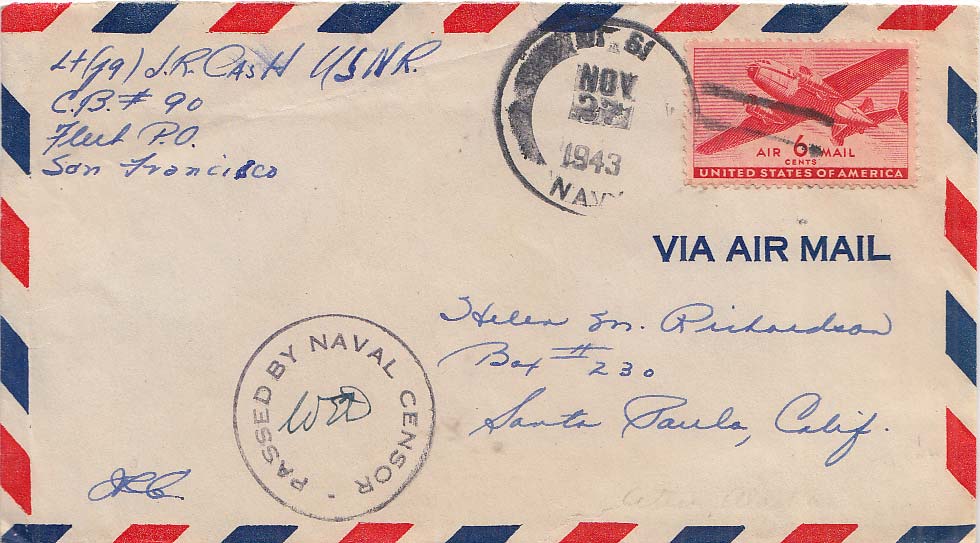 Lt(jg) J.R. Cash USNR.
C.B. # 90
Fleet P.O.
San Francisco
NOV
27
1943
NAVY
AIR 6 MAIL
CENTS
UNITED STATES OF AMERICA
VIA AIR MAIL
Helen M. Richardson
Box # 230
Santa Paula, Calif.
PASSED BY NAVAL CENSOR
JRC